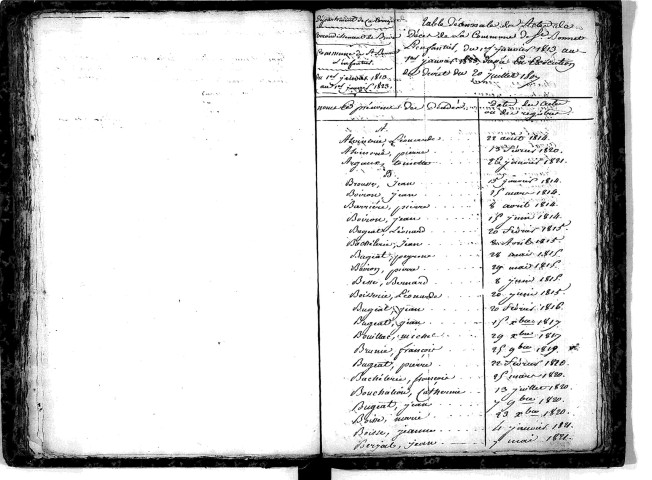 Département de la Corrèze
Arrondissement de Brive
Commune de St Bonnet
l'infantier
du 1er janvier 1813
au 1er janvier 1823.
Table Décennale des Actes de
Décès de la Commune de St Bonnet
L'infantier, du 1er janvier 1813, au
1er janvier 1823, en Exécution
du Décret du 20 juillet 1807
noms et prénoms des Décédés
Dates des actes
ou des registres
A.
Léonarde 22 août 1814.
pierre 13 février 1820.
26 janvier 1821.
B.
Brousse, Jean 15 janvier 1814.
Boiron, jean 15 mars 1814.
Barrière, pierre 8 avril 1814.
Boiron, jean 15 juin 1814.
Bugeat, Léonard 20 février 1815.
Bachélerie, Jean 2 Août 1815.
Bugeat, peyronne 28 mai 1815.
Boiron, pierre 29 mai 1815.
Besse, Bernard 8 juin 1815.
Boisserie, Léonarde 20 juin 1815.
Bugeat, jean 20 février 1816.
Bugeat, jean 15 xbre 1817
Bouillac, michel 29 xbre 1817
Brunie, françois 25 9bre 1819.
Bugeat, pierre 22 février 1820.
Bachélerie, françoise 25 mars 1820.
Catherine 13 juillet 1820.
Bugeat, jean 7 9bre 1820.
Boisse, marie 23 xbre 1820.
Boisse, jeanne 4 janvier 1821.
Jean 7 mai 1821.